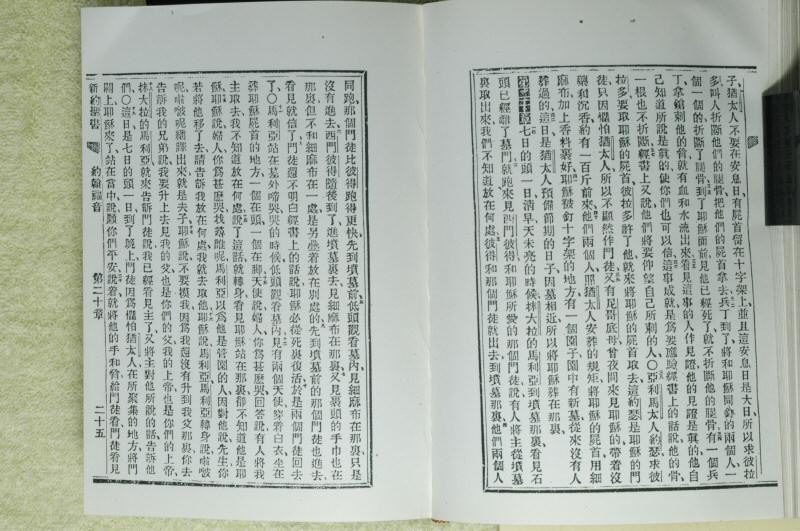 子猶太人不要在安息日有屍首留在十字架上並且這安息日是大日所以求彼拉
多呌人折斷他們的腿骨把他們的屍首拿去兵丁到了將和耶穌同釘的兩個人一
個一個的折斷了腿骨到了耶穌面前見他已經死了就不折斷他的腿骨有一個兵
丁拿鎗刺他的脅就有血和水流出來看見這事的人作見證他的見證是眞的他自
己知道所說是眞的使你們也可以信這事成就是爲要應驗經書上的話說他的骨
一根也不折斷經書上又說他們將要仰望自己所刺的人〇亞利馬太人約瑟求彼
拉多要取耶穌的屍首彼拉多許了他就來將耶穌的屍首取去這約瑟是耶穌的門
徒只因懼怕猶太人所以不顯然作門徒又有尼哥底母曾夜間來見耶穌的帶着沒
藥和沉香約有一百斤前來他們兩個人照猶太人安葬的規矩將耶穌的屍首用細
麻布加上香料裹好耶穌被釘十字架的地方有一個園子園中有新墓從來沒有人
葬過的這日是猶太人預備節期的日子因墓相近所以將耶穌葬在那裏
七日的頭一日清早天未亮的時候抹大拉的馬利亞到墳墓那裏看見石
頭已經離了墓門就跑來見西門彼得和耶穌所愛的那個門徒說有人將主從墳墓
裏取出來我們不知道放在何處彼得和那個門徒就出去到墳墓那裏他們兩個人
同跑那個門徒比彼得跑得更快先到墳墓前低頭觀看見細麻布在那裏只是
沒有進去西門彼得隨後到了進墳墓裏去見細麻布在那裏又見裹頭的手巾也在
那裏但不和細麻布在一處是另疊着放在別處的先到墳墓前的那個門徒也進去
看見就信了門徒還不明白經書上的話說耶穌必從死裏復活於是兩個門徒回去
了〇馬利亞站在墓外啼哭哭的時候低頭觀看墓內見有兩個天使穿着白衣坐在
葬耶穌屍首的地方一個在頭一個在脚天使說婦人你爲甚麽哭回答說有人將我
主取去我不知道放在何處說了這話就轉身看見耶穌站在那裏卻不知道他是耶
穌耶穌說婦人你爲甚麽哭找尋誰呢馬利亞以爲他是管園的人因對他說先生你
若將他移了去請告訴我放在何處我就去取他耶穌說馬利亞馬利亞轉身說喇啵
呢喇啵呢繙譯出來就是夫子耶穌說不要摸我因爲我還沒有升到我父那裏你去
告訴我的兄弟說我要升上去見我的父也是你們的父我的上帝也是你們的上帝
抹大拉的馬利亞就來告訴門徒說我已經看見主了又將主對他所說的話告訴他
們〇這日是七日的頭一日到了晚上門徒因爲懼怕猶太人在所聚集的地方將門
關上耶穌來了站在當中說願你們平安說着就將他的手和脅給門徒看門徒看見
新約聖書　約翰福音　第二十章　二十五